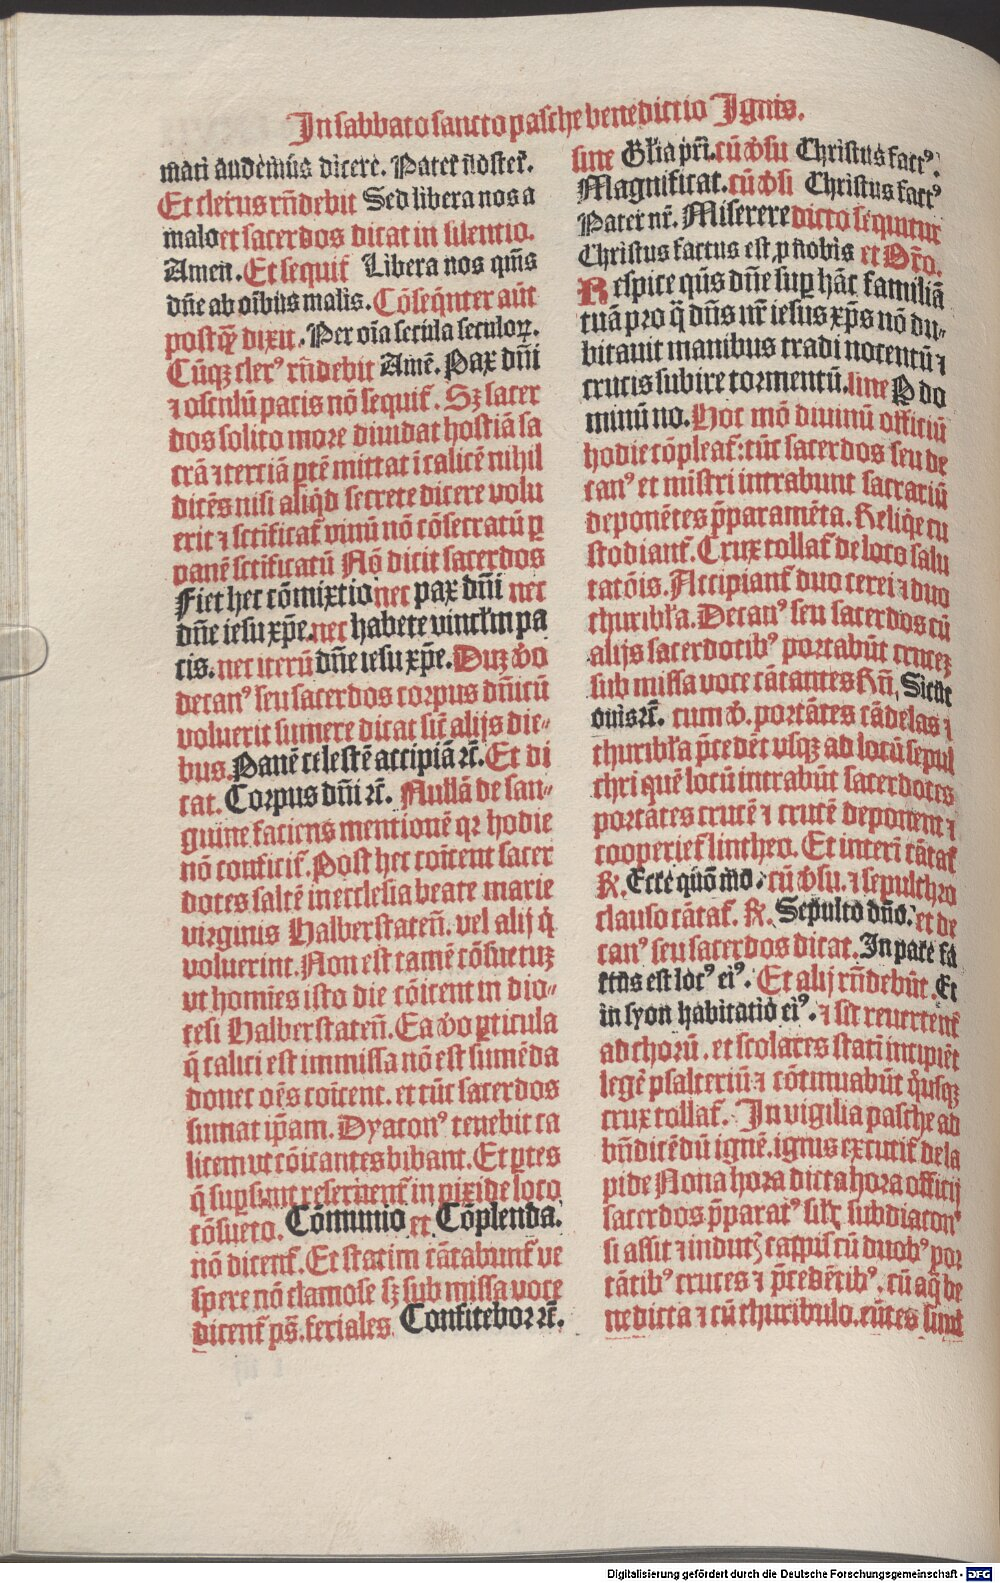 In sabbato sancto pasche benedictio Ignis.
mati audemus dicere. Pater noster.
Et clerus rñdebit Sed libera nos a
malo et sacerdos dicat in silentio.
Amen. Et sequit᷑ Libera nos qm̃s
dñe ab oĩbus malis. Cõseq̃nter aũt
postq̃ꝫ dixit. Per oĩa secula seculoꝝ.
Cũqꝫ clerꝰ rñdebit Amẽ. Pax dñi
⁊ osculũ pacis nõ sequit᷑. Sꝫ sacer
dos solito more diuidat hostiã sa
crã ⁊ terciã ꝑtẽ mittat ĩ calicẽ nihil
dicẽs nisi aliq̃d secrete dicere volu
erit ⁊ sctificat᷑ vinũ nõ cõsecratũ ꝑ
panẽ sctificatũ Nõ dicit sacerdos
Fiet hec cõmixtio nec pax dñi nec
dñe iesu xp̃e. nec habete vincl̃m pa
cis. nec iterũ dñe iesu xp̃e. Duꝫ ṽo
decanꝰ seu sacerdos corpus dñicũ
voluerit sumere dicat sic̃ alijs die⸗
bus. Panẽ celestẽ accipiã ⁊c̃. Et di
cat. Corpus dñi ⁊c̃. Nullã de san⸗
guine faciens mentionẽ qꝛ hodie
nõ conficit᷑. Post hec cõicent sacer
dotes saltẽ in ecclesia beate marie
virginis Halberstateñ. vel alij q̃
voluerint. Non est tamẽ cõsuetuꝫ
vt homĩes isto die cõicent in dio⸗
cesi Halberstateñ. Ea ṽo ꝑticula
q̃ calici est immissa nõ est sumẽda
donec oẽs cõicent. et tũc sacerdos
sumat ip̃am. Dyaconꝰ tenebit ca
licem vt cõicantes bibant. Et ꝑtes
q̃ supsunt reseruent᷑ in pixide loco
cõsueto. Cõmunio et Cõplenda.
nõ dicent᷑. Et statim cãtabunt᷑ ve
spere nõ clamose sꝫ sub missa voce
dicent᷑ ps̃. feriales Confitebor ⁊c̃.
sine Glĩa pr̃i. cũ ṽsu Christus factꝰ.
Magnificat. cũ ṽsi Christus factꝰ
Pater nr̃. Miserere dicto sequitur
Christus factus est ꝓ nobis et Or̃o.
Respice qs̃ dñe suꝑ hãc familiã
tuã pro q̃ dñs nr̃ iesus xp̃s nõ du⸗
bitauit manibus tradi nocentũ ⁊
crucis subire tormentũ. sine P̱ do
minũ no. Hoc mõ diuinũ officiũ
hodie cõpleat᷑: tũc sacerdos seu de
canꝰ et mĩstri intrabunt sacrariũ
deponẽtes p̃paramẽta. Reliq̃e cu
stodiant᷑. Crux tollat᷑ de loco salu
tatõis. Accipiant᷑ duo cerei ⁊ duo
thuribl̃a. Decanꝰ seu sacerdos cũ
alijs sacerdotibꝰ portabũt crucẽ
sub missa voce cãtantes Rñ. Sicut
ouis ⁊c̃. cum ṽ. portãtes cãdelas ⁊
thuribl̃a p̃cedẽt vsqꝫ ad locũ sepul
chri quẽ locũ intrabũt sacerdotes
portãtes crucẽ ⁊ crucẽ deponent ⁊
cooperiet᷑ lintheo. Et interĩ cãtat᷑
℟. Ecce quõ mo. cũ ṽsu. ⁊ sepulchro
clauso cãtat᷑. ℟. Sepulto dño. et de
canꝰ seu sacerdos dicat. In pace fa
ctus est locꝰ eiꝰ. Et alij rñdebũt. Et
in syon habitatio eiꝰ. ⁊ sic reuertent᷑
ad chorũ. et scolares statĩ incipiẽt
legẽ psalteriũ ⁊ cõtinuabũt q̃usqꝫ
crux tollat᷑. In vigilia pasche ad
bñdicẽdũ ignẽ. ignis excutit᷑ de la
pide Nona hora dicta hora officij
sacerdos p̃paratꝰ sil̃r subdiaconꝰ
si assit ⁊ indutꝫ cappis cũ duobꝰ por
tãtibꝰ cruces ⁊ p̃cedẽtibꝰ. cũ aq̃ be
nedicta ⁊ cũ thuribulo. eũtes simł
Digitalisierung gefördert durch die Deutsche Forschungsgemeinschaft - DFG